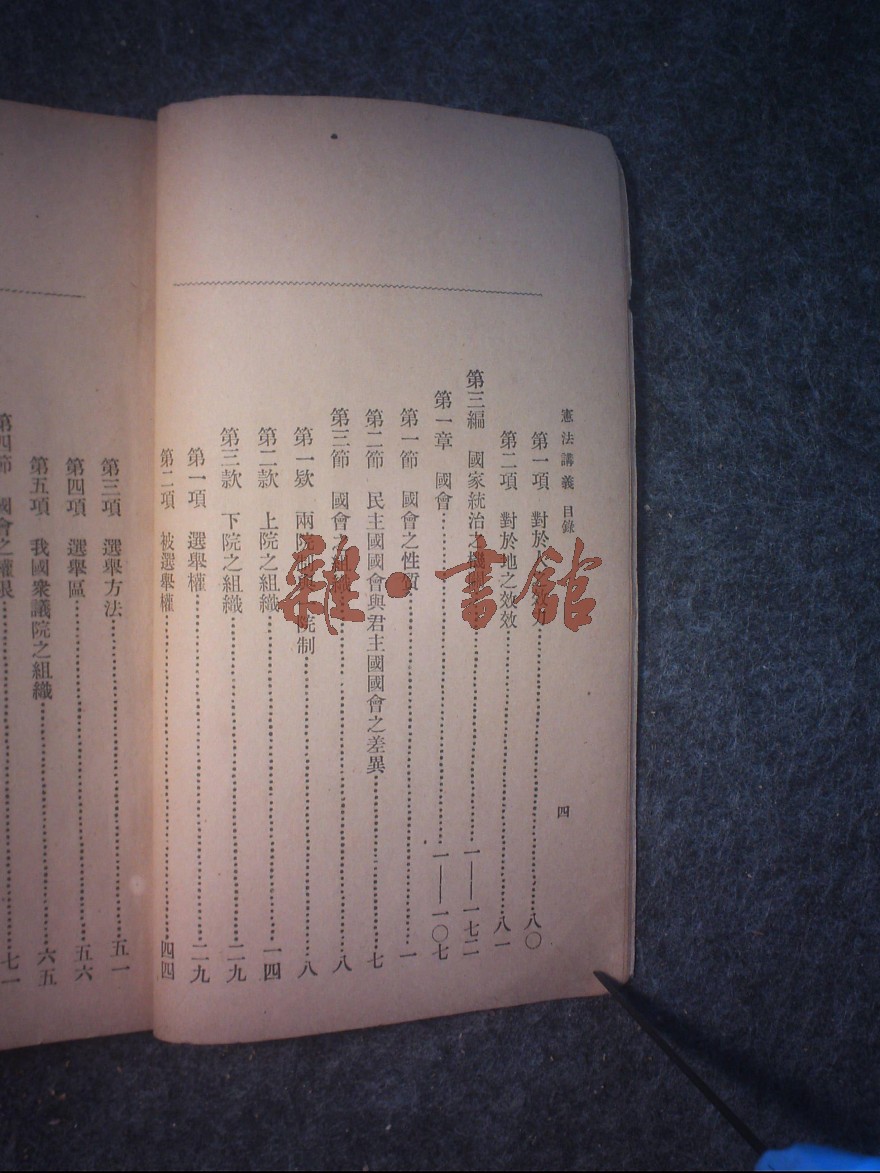 憲法講義 目錄
四
第一項 對於人 八〇
第二項 對於地之效效 八一
第三編 國家統治之機 一——一七二
第一章 國會 一——一〇七
第一節 國會之性質 一
第二節 民主國國會與君主國國會之差異 七
第三節 國會之組織 八
第一欵 兩院制與 院制 八
第二款 上院之組織 一四
第三款 下院之組織 二九
第一項 選舉權 二九
第二項 被選舉權 四四
第三項 選舉方法 五一
第四項 選舉區 五六
第五項 我國衆議院之組織 六五
第四節 國會之權限 七一
雜·書館